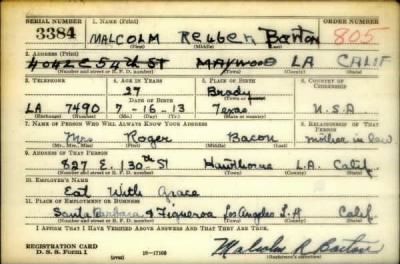 SERIAL NUMBER 1. NAME (Print) ORDER NUMBER
3384 MALCOLM REUBEN Barton 805
(First) (Middle) (Last)
2. ADDRESS (Print)
404 E 54th ST MAYWOOD LA CALIF
(Number and street or R. F. D. number) (Town) (County) (State)
3. TELEPHONE 4. AGE IN YEARS 5. PLACE OF BIRTH 6. COUNTRY OF CITIZENSHIP
27 Brady
DATE OF BIRTH
LA 7490 7-16-13 Texas U.S.A
(Exchange) (Number) (Mo.) (Day) (Yr.) (State or country)
7. NAME OF PERSON WHO WILL ALWAYS KNOW YOUR ADDRESS 8. RELATIONSHIP OF THAT PERSON
Mrs Roger Bacon mother in law
(Mr., Mrs., Miss) (First) (Middle) (Last)
9. ADDRESS OF THAT PERSON
827 E. 130th St Hawthorne L.A. Calif.
(Number and street or R. F. D. number) (Town) (County) (State)
10. EMPLOYER'S NAME
Eat With Grace
11. PLACE OF EMPLOYMENT OR BUSINESS
Santa Barbara & Figueroa Los Angeles L.A. Calif.
(Number and street or R. F. D. number) (Town) (County) (State)
I AFFIRM THAT I HAVE VERIFIED ABOVE ANSWERS AND THAT THEY ARE TRUE.
REGISTRATION CARD
D. S. S. Form 1 16—17105 Malcolm R Barton
(Registrant's signature)